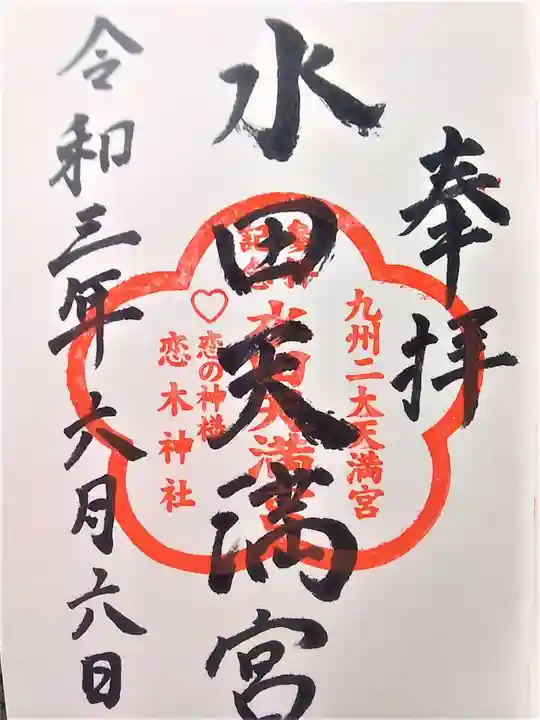 奉拝
九州二大天満宮
水田天満宮
水田天満宮
恋の神様
恋木神社
令和三年六月六日